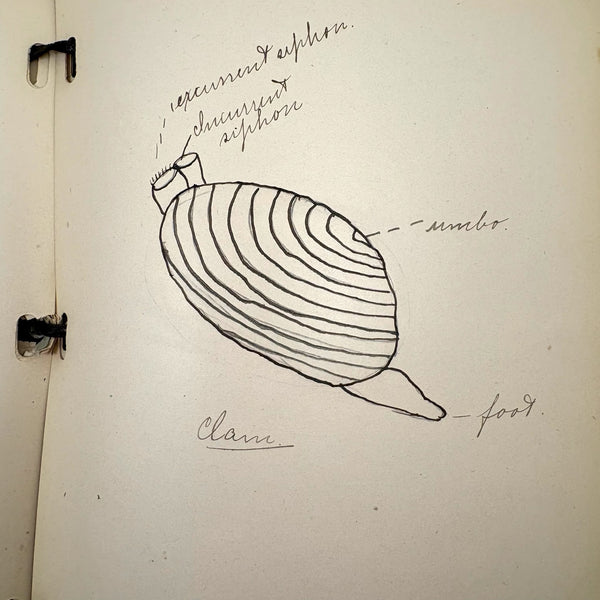 excurrent siphon.
incurrent
siphon
umbo.
foot.
Clam.